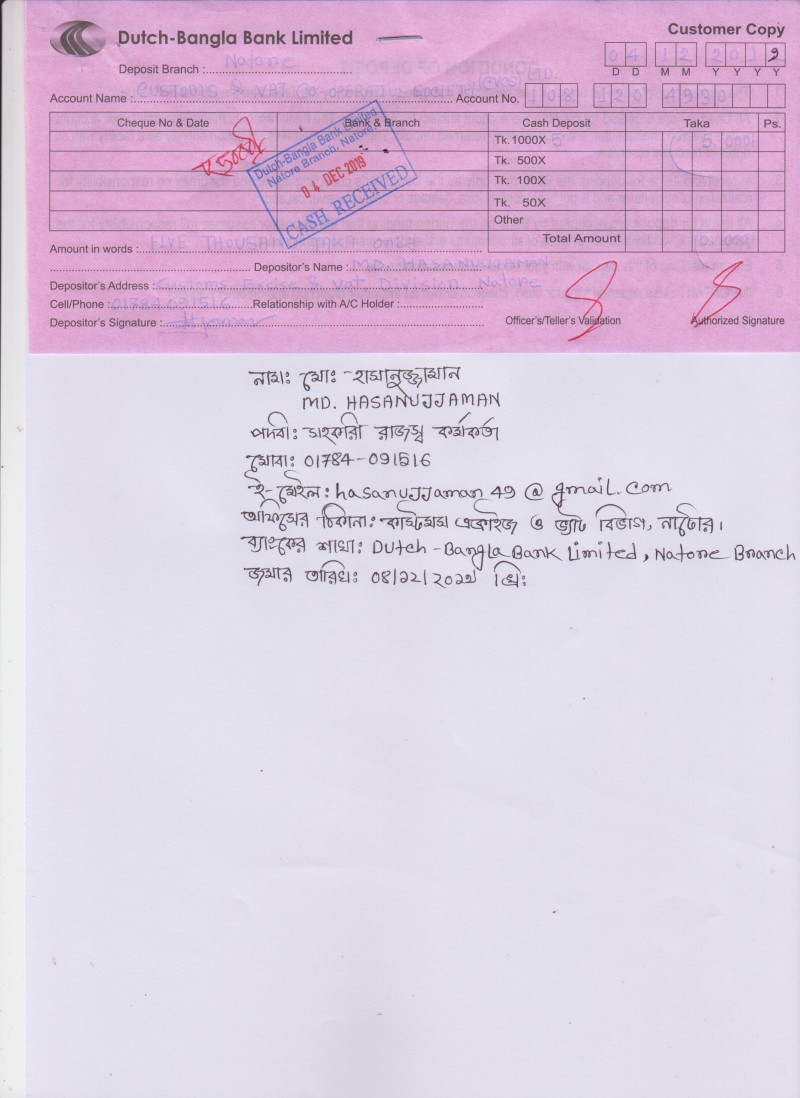 Dutch-Bangla Bank Limited
Customer Copy
Deposit Branch : Natore
04 12 2019
D D M M Y Y Y Y
Account Name : CUSTOMS & VAT CO-OPERATIVE SOCIETY LTD.
Account No. 108 120 4930
Cheque No & Date Bank & Branch Cash Deposit Taka Ps.
Tk. 1000X 5 5,000/-
Tk. 500X
Tk. 100X
Tk. 50X
Other
Total Amount 5,000/-
Dutch-Bangla Bank Limited
Natore Branch, Natore.
04 DEC 2019
CASH RECEIVED
Amount in words : FIVE THOUSAND TAKA ONLY
Depositor's Name : MD. HASANUJJAMAN
Depositor's Address : Customs Excise & Vat Division, Natore
Cell/Phone : 01784091516 Relationship with A/C Holder :
Depositor's Signature :
Officer's/Teller's Validation Authorized Signature
নামঃ মোঃ হাসানুজ্জামান
MD. HASANUJJAMAN
পদবীঃ সহকারী রাজস্ব কর্মকর্তা
মোবাঃ 01784-091516
ই-মেইল: hasanujjaman49@gmail.com
অফিসের ঠিকানা: কাস্টমস এক্সাইজ ও ভ্যাট বিভাগ, নাটোর।
ব্যাংকের শাখা: Dutch-Bangla Bank Limited, Natore Branch
জমার তারিখঃ ০৪/১২/২০১৯ খ্রিঃ